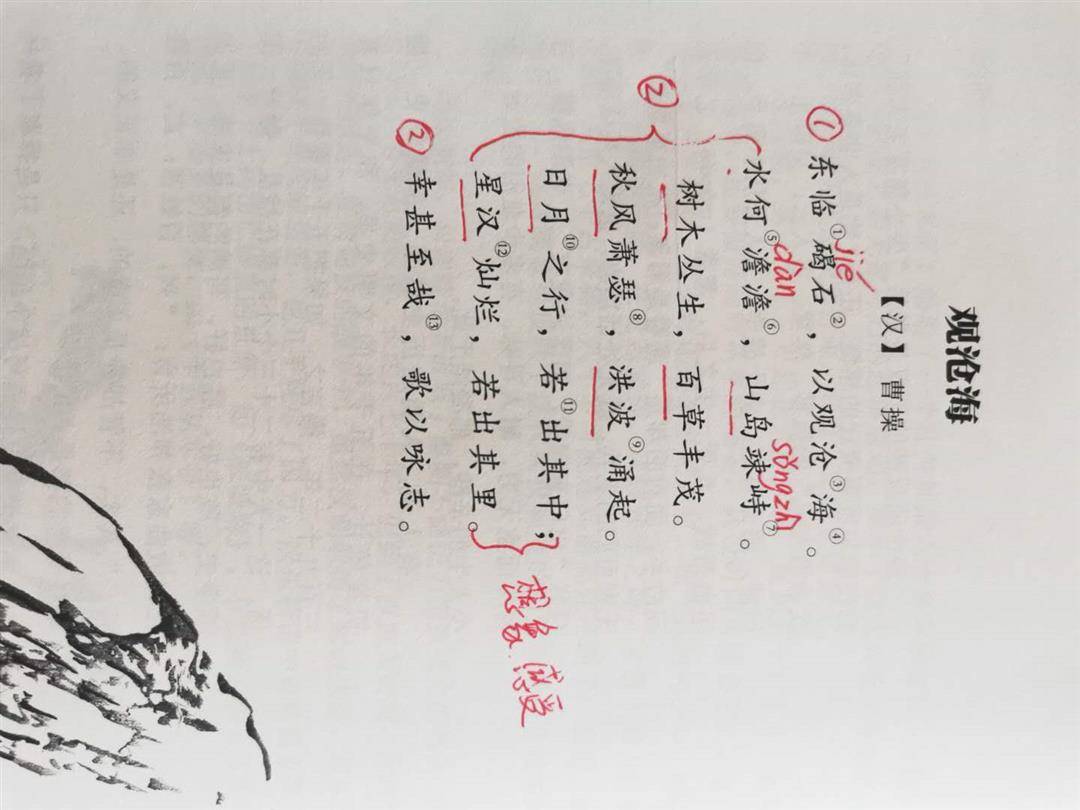 观沧海
【汉】 曹操
① 东临①碣石②，以观沧③海④。
jié
水何⑤澹澹⑥，山岛竦峙⑦。
dàn
sǒngzhì
② 树木丛生，百草丰茂。
秋风萧瑟⑧，洪波⑨涌起。
日月⑩之行，若⑪出其中；
星汉⑫灿烂，若出其里。
想象.感受
② 幸甚至哉⑬，歌以咏志。